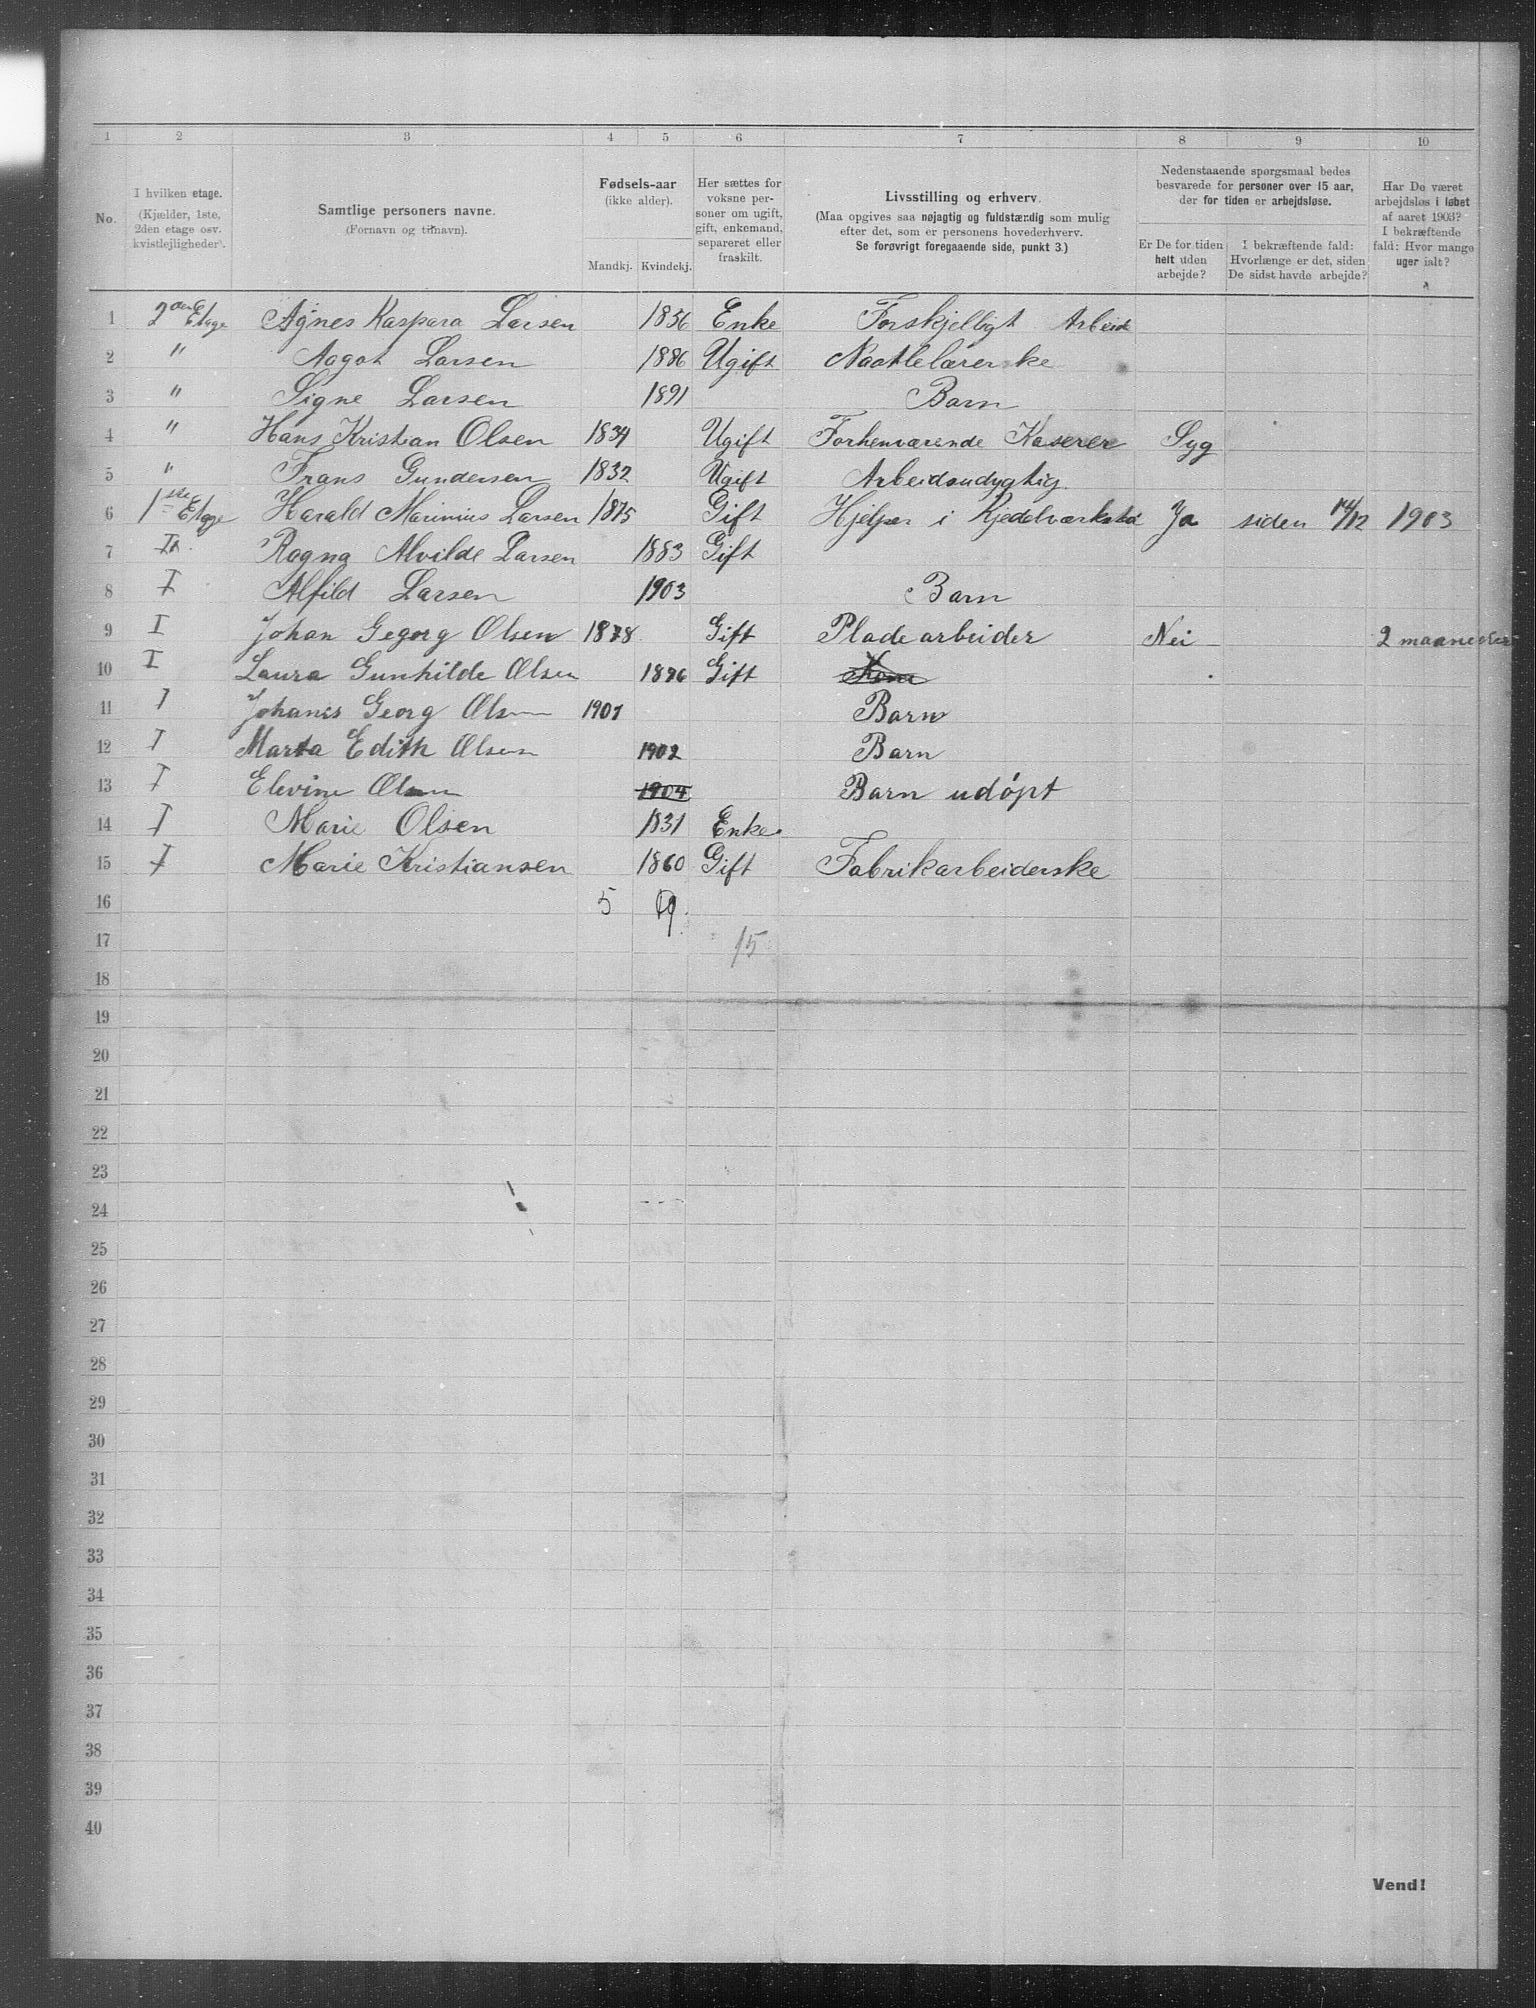 1 2 3 4 5 6 7 8 9 10
No.
I hvilken etage.
(Kjælder, 1ste,
2den etage osv.
kvistlejligheder).
Samtlige personers navne.
(Fornavn og tilnavn).
Fødsels-aar
(ikke alder).
Mandkj. Kvindekj.
Her sættes for
voksne per-
soner om ugift,
gift, enkemand,
separeret eller
fraskilt.
Livsstilling og erhverv.
(Maa opgives saa nøjagtig og fuldstændig som mulig
efter det, som er personens hovederhverv.
Se forøvrigt foregaaende side, punkt 3.)
Nedenstaaende spørgsmaal bedes
besvarede for personer over 15 aar,
der for tiden er arbejdsløse.
Er De for tiden
helt uden
arbejde?
I bekræftende fald:
Hvorlænge er det, siden
De sidst havde arbejde?
Har De været
arbejdsløs i løbet
af aaret 1903?
I bekræftende
fald: Hvor mange
uger ialt?
1 2den Etage Agnes Kaspara Larsen 1856 Enke Forskjelligt Arbeide
2 " Aagot Larsen 1886 Ugift Naatlelærerske
3 " Signe Larsen 1891 Barn
4 " Hans Kristian Olsen 1834 Ugift Forhenværende Kaserer Syg
5 " Frans Gundersen 1832 Ugift Arbeidsudygtig
6 1ste Etage Harald Marinius Larsen 1875 Gift Hjelper i Kjedelværksted Ja siden 14/12 1903
7 Ragna Alvilde Larsen 1883 Gift
8 I Alfild Larsen 1903 Barn
9 I Johan Gegorg Olsen 1878 Gift Pladearbeider Nei 2 maaneder
10 I Laura Gunhilde Olsen 1876 Gift
11 I Johanes Georg Olsen 1901 Barn
12 I Marta Edith Olsen 1902 Barn
13 I Elevine Olsen 1904 Barn udøpt
14 I Marie Olsen 1831 Enke
15 I Marie Kristiansen 1860 Gift Fabrikarbeiderske
16 5
17 15
18
19
20
21
22
23
24
25
26
27
28
29
30
31
32
33
34
35
36
37
38
39
40
Vend!